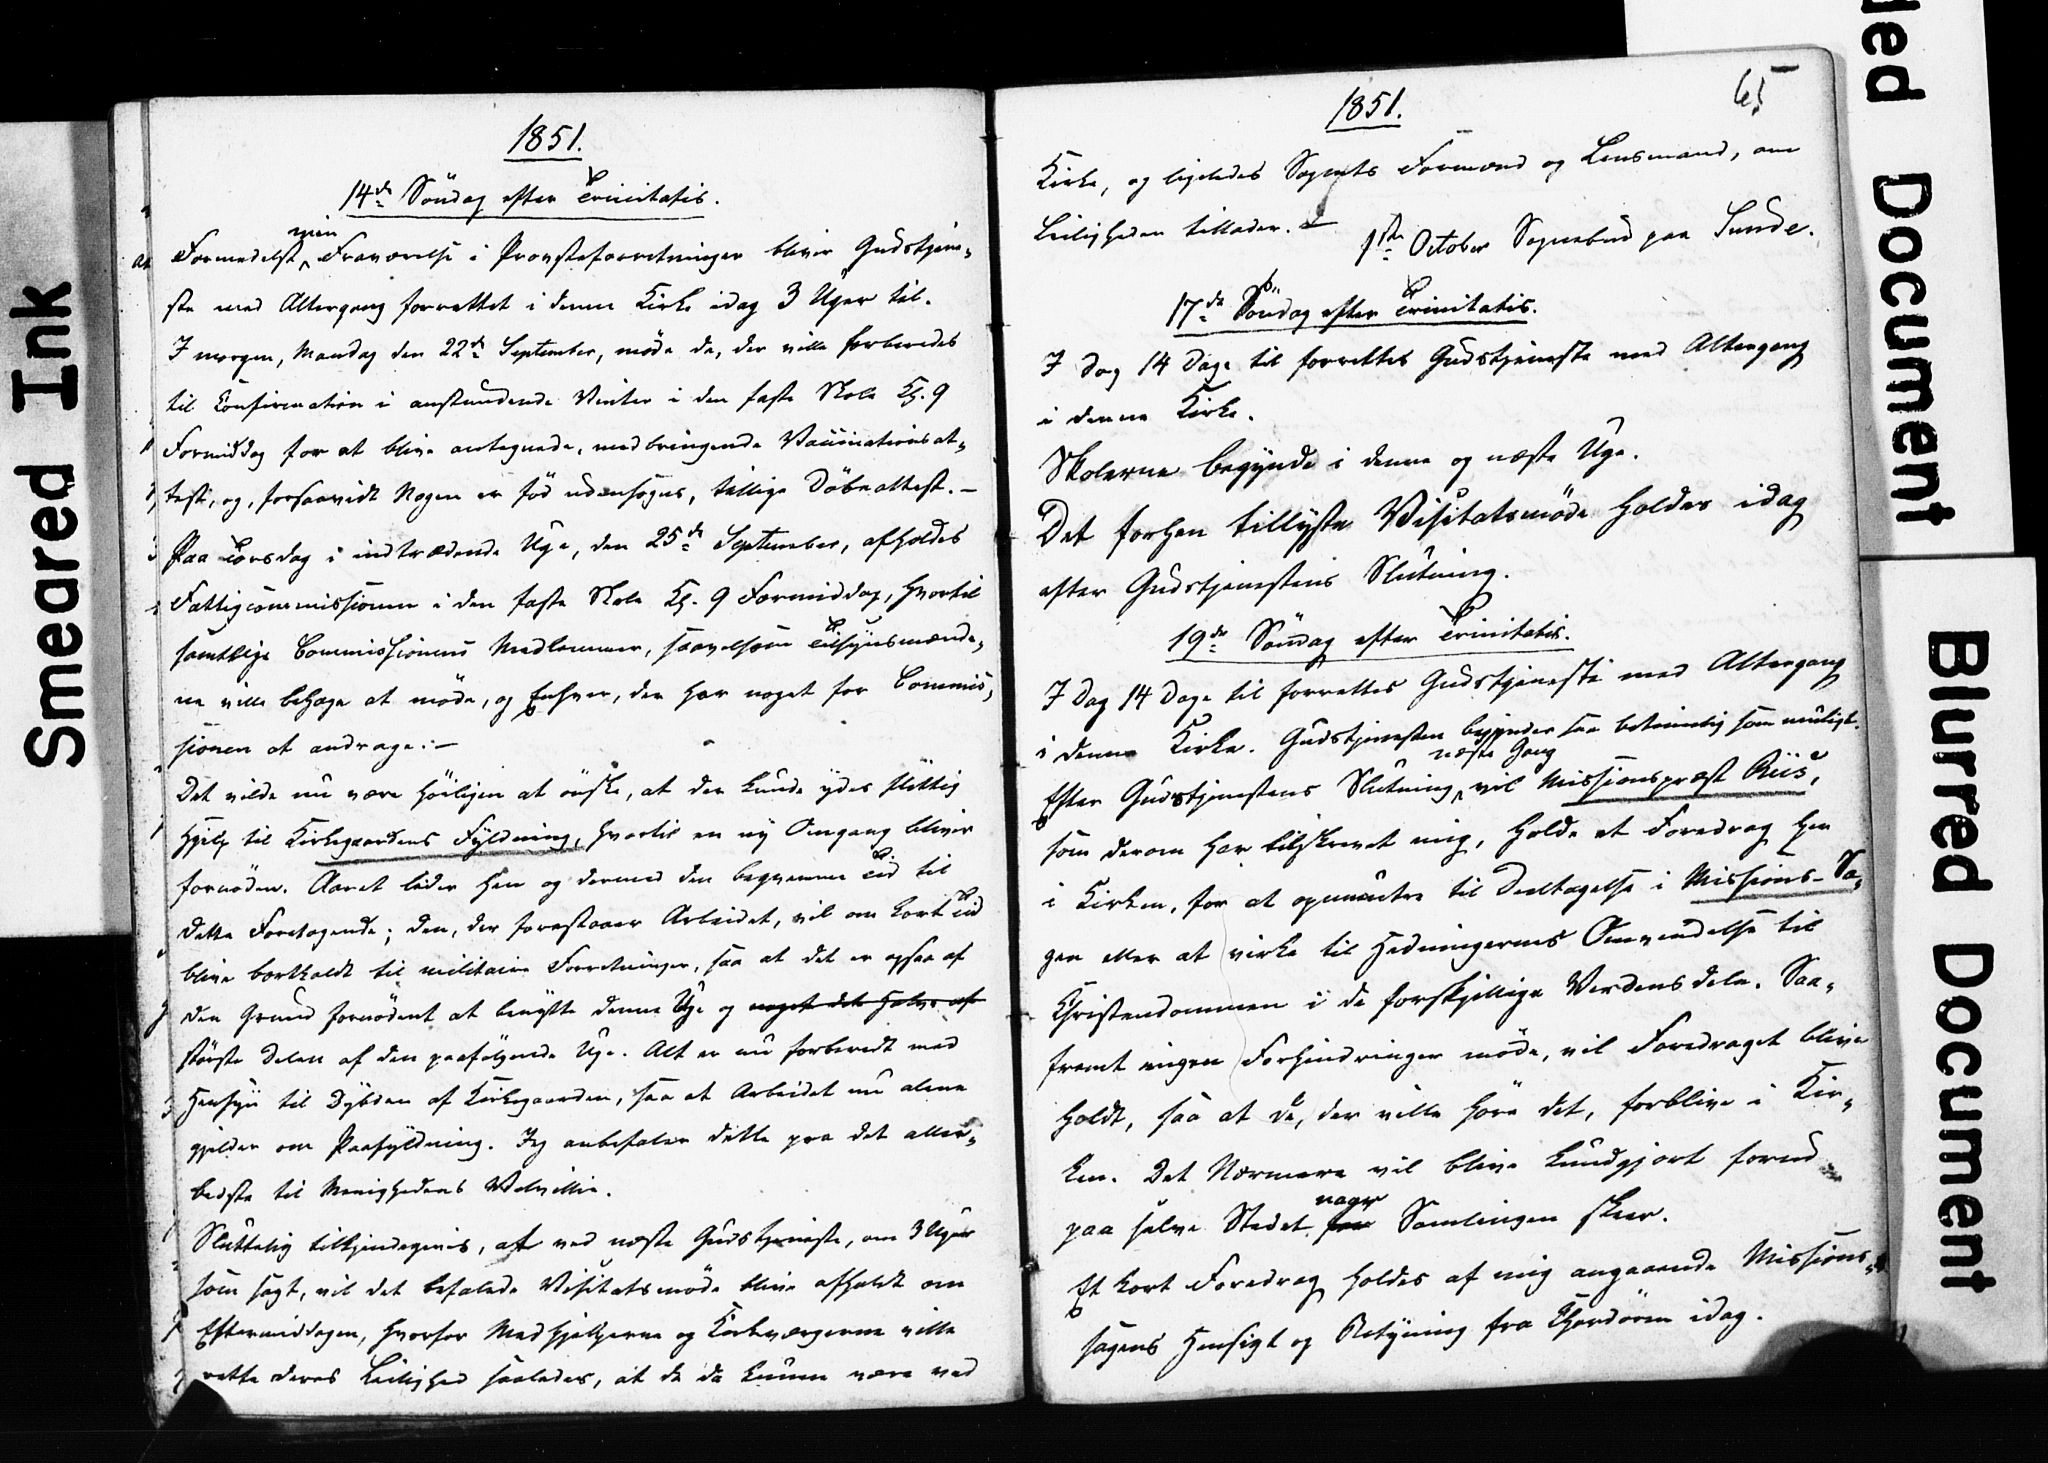 Smeared Ink
1851.
14de Söndag efter Trinitatis.
Formedelst min Fraværelse i Provsteforretninger bliver Gudstjene-
ste med Altergang forrettet i denne Kirke idag 3 Uger til.
I morgen, Mandag den 22de September, møde de, der ville forberedes
til Confirmation i anstundende Vinter i den faste Skole Kl. 9
Formiddag for at blive antegnede, medbringende Vaccinationsat-
test, og, forsaavidt Nogen er fød udensogns, tillige Döbeattest.-
Paa Torsdag i indtrædende Uge, den 25de September, afholdes
Fattigcommissionen i den faste Skole Kl. 9 Formiddag, hvortil
samtlige Commissionens Medlemmer, saavelsom Tilsynsmænde-
ne ville behage at möde, og Enhver, der har noget for Commis-
sionen at andrage:-
Det vilde nu være höiligen at önske, at der kunde ydes flittig
Hjelp til Kirkegaardens Fyldning, hvortil en ny Omgang bliver
fornöden. Aaret lider hen og dermed den beqvemme Tid til
dette Foretagende; den, der forestaaer Arbeidet, vil om kort Tid
blive bortkaldt til militaire Forretninger, saa at det er ogsaa af
den Grund fornödent at benytte denne Uge og noget det halve af
störste Delen af den paafölgende Uge. Alt er nu forberedt med
Hensyn til Dybden af Kirkegaarden, saa at Arbeidet nu alene
gjelder om Paafyldning. Jeg anbefaler dette paa det aller-
bedste til Menighedens Velvillie.
Sluttelig tilkjendegives, at ved næste Gudstjeneste, om 3 Uger
som sagt, vil det befalede Visitatsmöde blive afholdt om
Eftermiddagen, hvorfor Medhjelperne og Kirkeværgerne ville
rette deres Leilighed saaledes, at de da kunne være ved
65
1851.
Kirke, og ligeledes Sognets Formænd og Lensmand, om
Leiligheden tillader.
1ste October Sognebud paa Sunde.
17de Söndag efter Trinitatis.
I dag 14 Dage til forrettes Gudstjeneste med Altergang
i denne Kirke.
Skolerne begynde i denne og næste Uge.
Det forhen tillyste Visitatsmöde holdes idag
efter Gudstjenestens Slutning.
19de Söndag efter Trinitatis.
I Dag 14 Dage til forrettes Gudstjeneste med Altergang
i denne Kirke. Gudstjenesten begynder saa betimelig som muligt.
Efter Gudstjenestens Slutning næste Gang vil Missionspræst Riis,
som derom har tilskrevet mig, holde et Foredrag her
i Kirken, for at opmuntre til Deeltagelse i Missions-Sa-
gen eller at virke til Hedningernes Omvendelse til
Christendommen i de forskjellige Verdensdele. Saa-
fremt ingen Forhindringer møde, vil Foredraget blive
holdt, saa at de, der ville höre det, forblive i Kir-
ken. Det Nærmere vil blive kundgjort forud
paa selve Stedet naar Samlingen skeer.
Et kort Foredrag holdes af mig angaaende Missions-
sagens Hensigt og Betydning fra Chordören idag.
led Document
Blurred Document